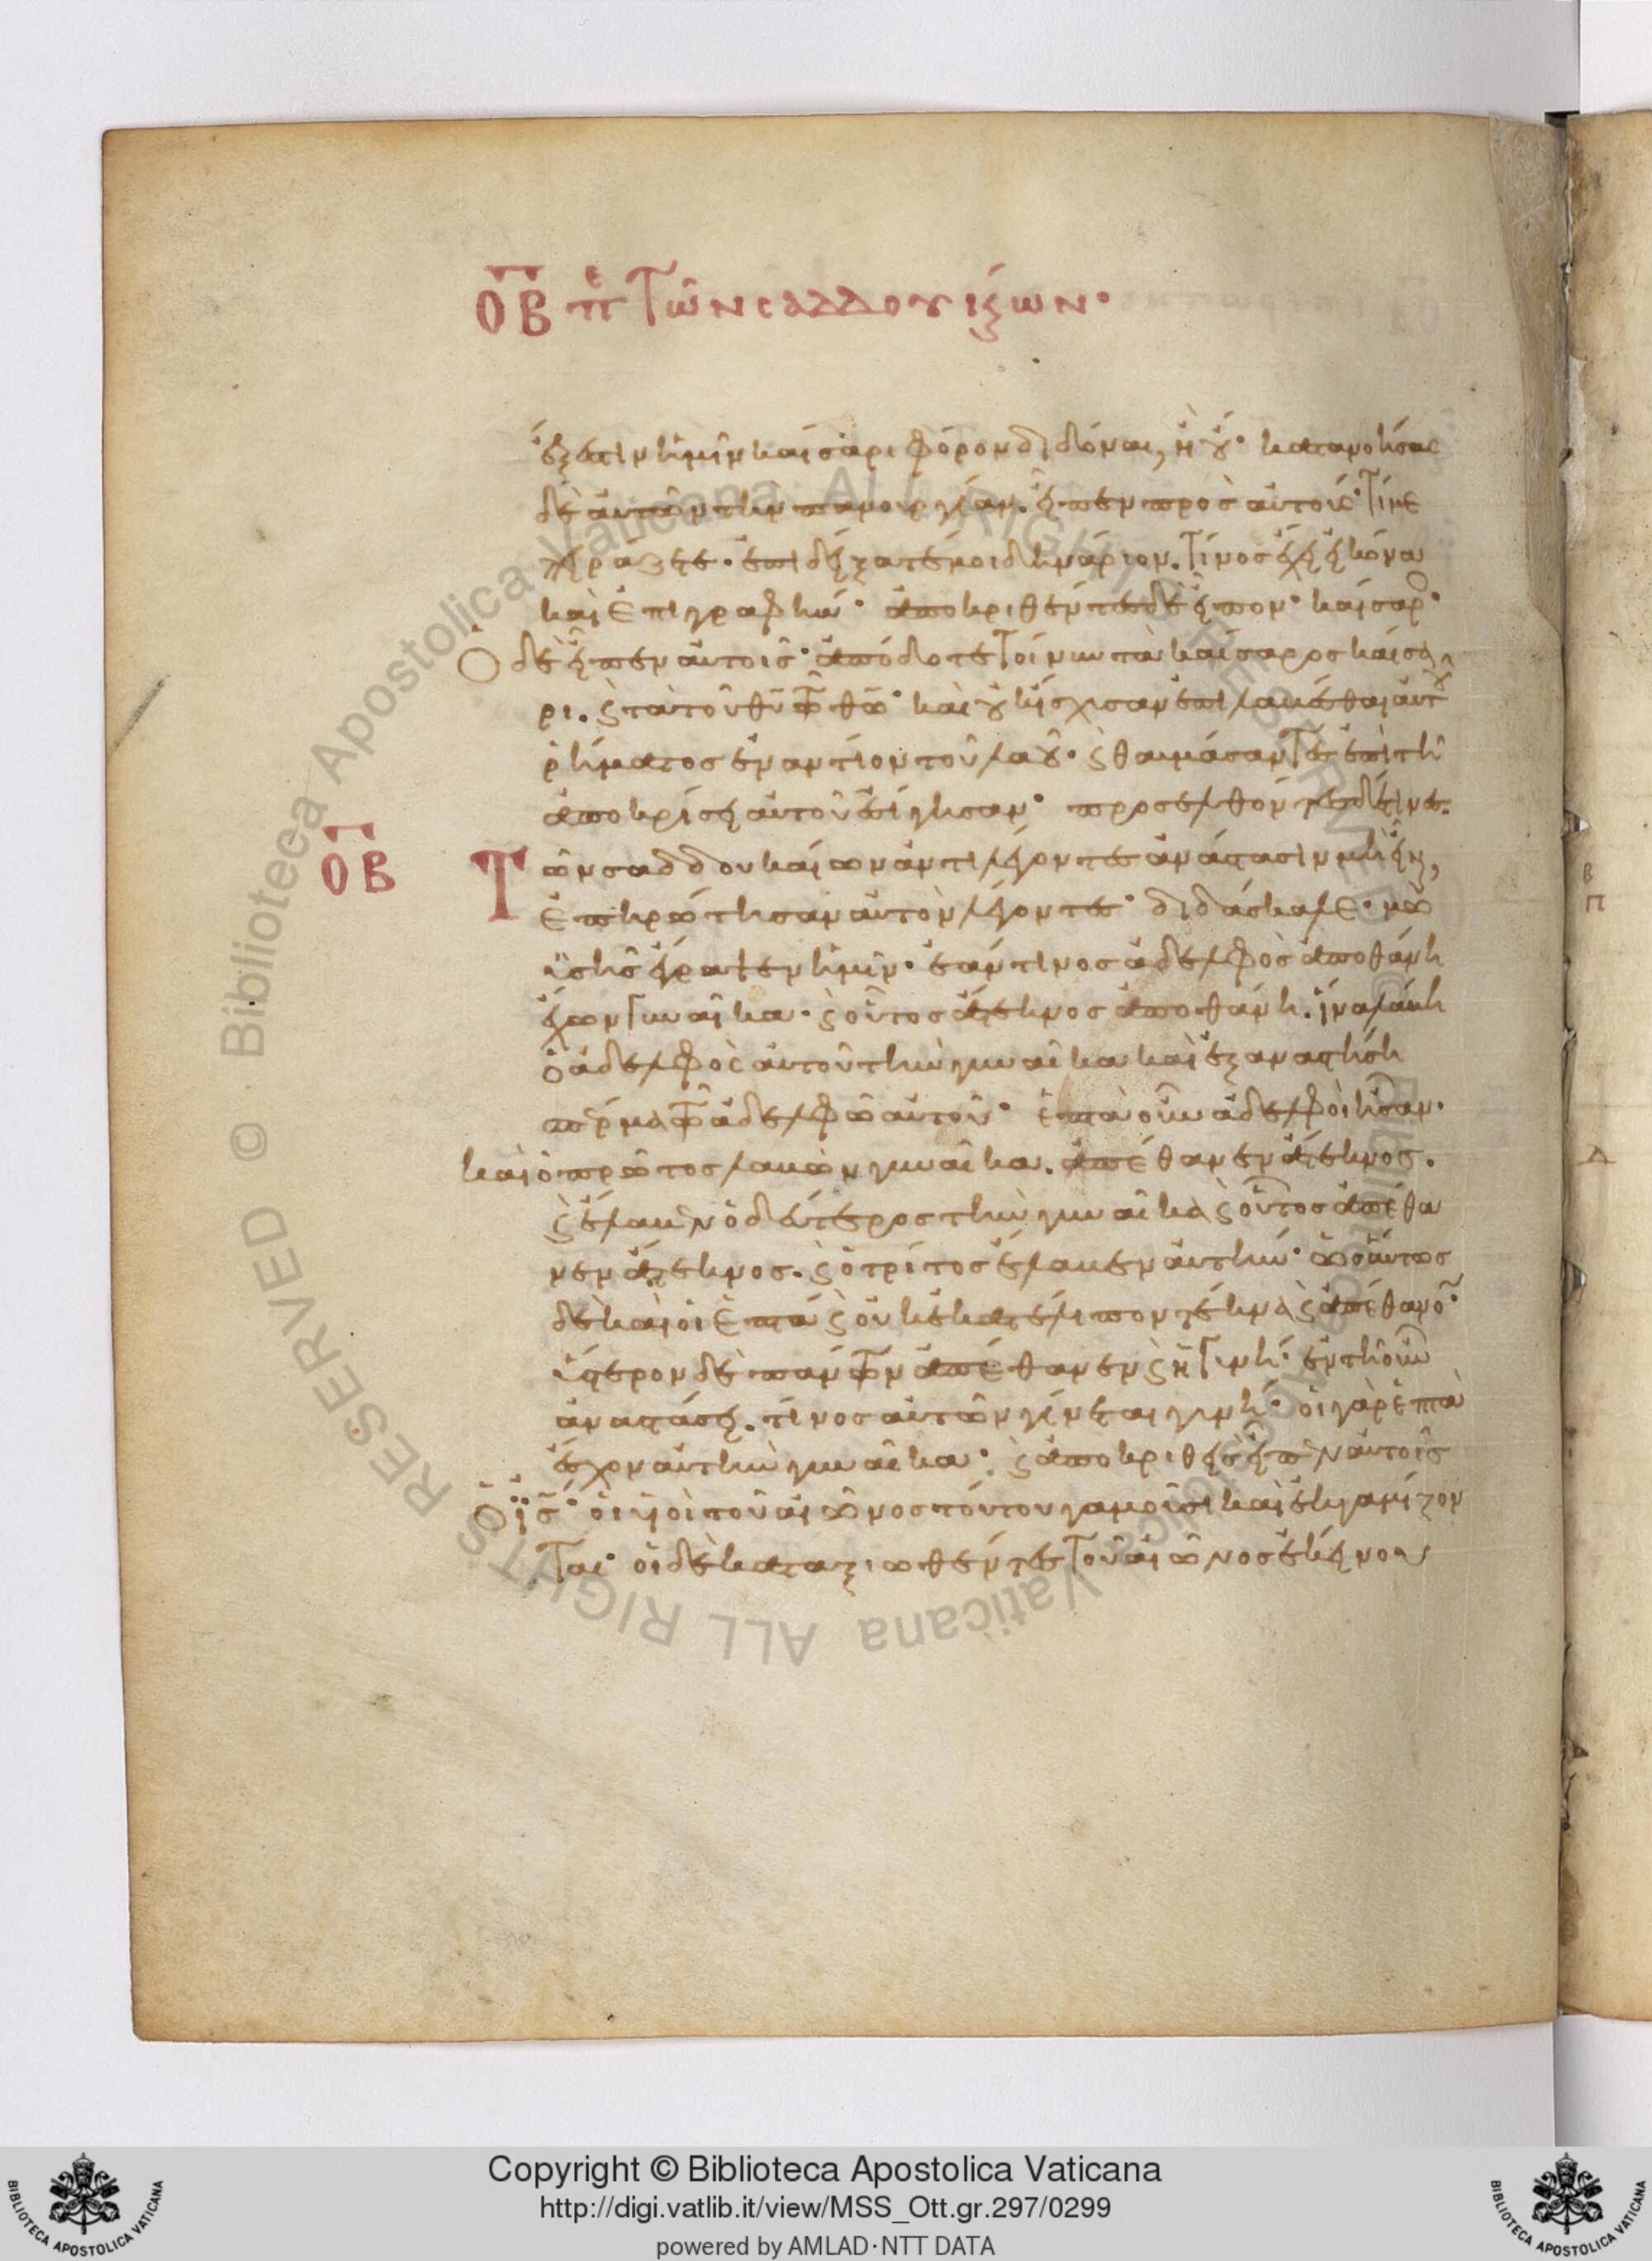 ΟΒ πε Των σαδδουκαίων·
ἔξεστιν ἡμῖν καίσαρι φόρον διδόναι, ἢ οὔ· κατανοήσας
δὲ αὐτῶν τὴν πανουργίαν. εἶπεν πρὸς αὐτούς· Τί με
πειράζετε· ἐπιδείξατέ μοι δηνάριον. Τίνος ἔχει εἰκόνα
καὶ ἐπιγραφήν· ἀποκριθέντες δὲ εἶπον· καίσαρο·
Ὁ δὲ εἶπεν αὐτοῖς· ἀπόδοτε Τοίνυν τὰ καίσαρος καίσα
ρι. ϛ τὰ τοῦ θυ τῷ θῶ· καὶ οὐκ ἴσχυσαν ἐπιλαβέσθαι αὐτου
ῥήματος ἐναντίον τοῦ λαοῦ· ϛ θαυμάσαντες ἐπὶ τῇ
ἀποκρίσει αὐτοῦ ἐσίγησαν· προσελθόντες δέ τινες
ΟΒ Τῶν σαδδουκαίων ἀντιλέγοντες ἀνάστασιν μὴ εἶναι,
ἐπηρώτησαν αὐτὸν λέγοντες· διδάσκαλε· μω
ϋσῆς ἔγραψεν ἡμῖν· ἐάν τινος ἀδελφὸς ἀποθάνη
ἔχων Γυναῖκα· ϛ οὗτος ἄτεκνος ἀποθάνη. ἵνα λάβη
ὁ ἀδελφὸς αὐτοῦ τὴν γυναῖκα καὶ ἐξαναστήση
σπέρμα τῶ ἀδελφῶ αὐτοῦ· ἑπτὰ οὖν ἀδελφοὶ ἦσαν·
καὶ ὁ πρῶτος λαβὼν γυναῖκα. ἀπέθανεν ἄτεκνος.
ϛ ἔλαβεν ὁ δεύτερος τὴν γυναῖκα ϛ οὗτος ἀπέθα
νεν ἄτεκνος. ϛ ὁ τρίτος ἔλαβεν αὐτήν· ὡσαύτως
δὲ καὶ οἱ ἑπτά ϛ οὐ κατέλιπον τέκνα ϛ ἀπέθανον·
ὕστερον δὲ πάντων ἀπέθανεν ϛ ἡ Γυνή· ἐν τῇ οὖν
ἀναστάσει. τίνος αὐτῶν γίνεται γυνή· οἱ γὰρ ἑπτὰ
ἔσχον αὐτὴν γυναῖκα· ϛ ἀποκριθεὶς εἶπεν αὐτοῖς
Ὁ ϊς· οἱ υἱοὶ τοῦ αἰῶνος τούτου γαμοῦσι καὶ ἐκγαμίζον
Ται· οἱ δὲ καταξιωθέντες Τοῦ αἰῶνος ἐκείνου
Copyright © Biblioteca Apostolica Vaticana
http://digi.vatlib.it/view/MSS_Ott.gr.297/0299
powered by AMLAD·NTT DATA
BIBLIOTECA APOSTOLICA VATICANA
BIBLIOTECA APOSTOLICA VATICANA